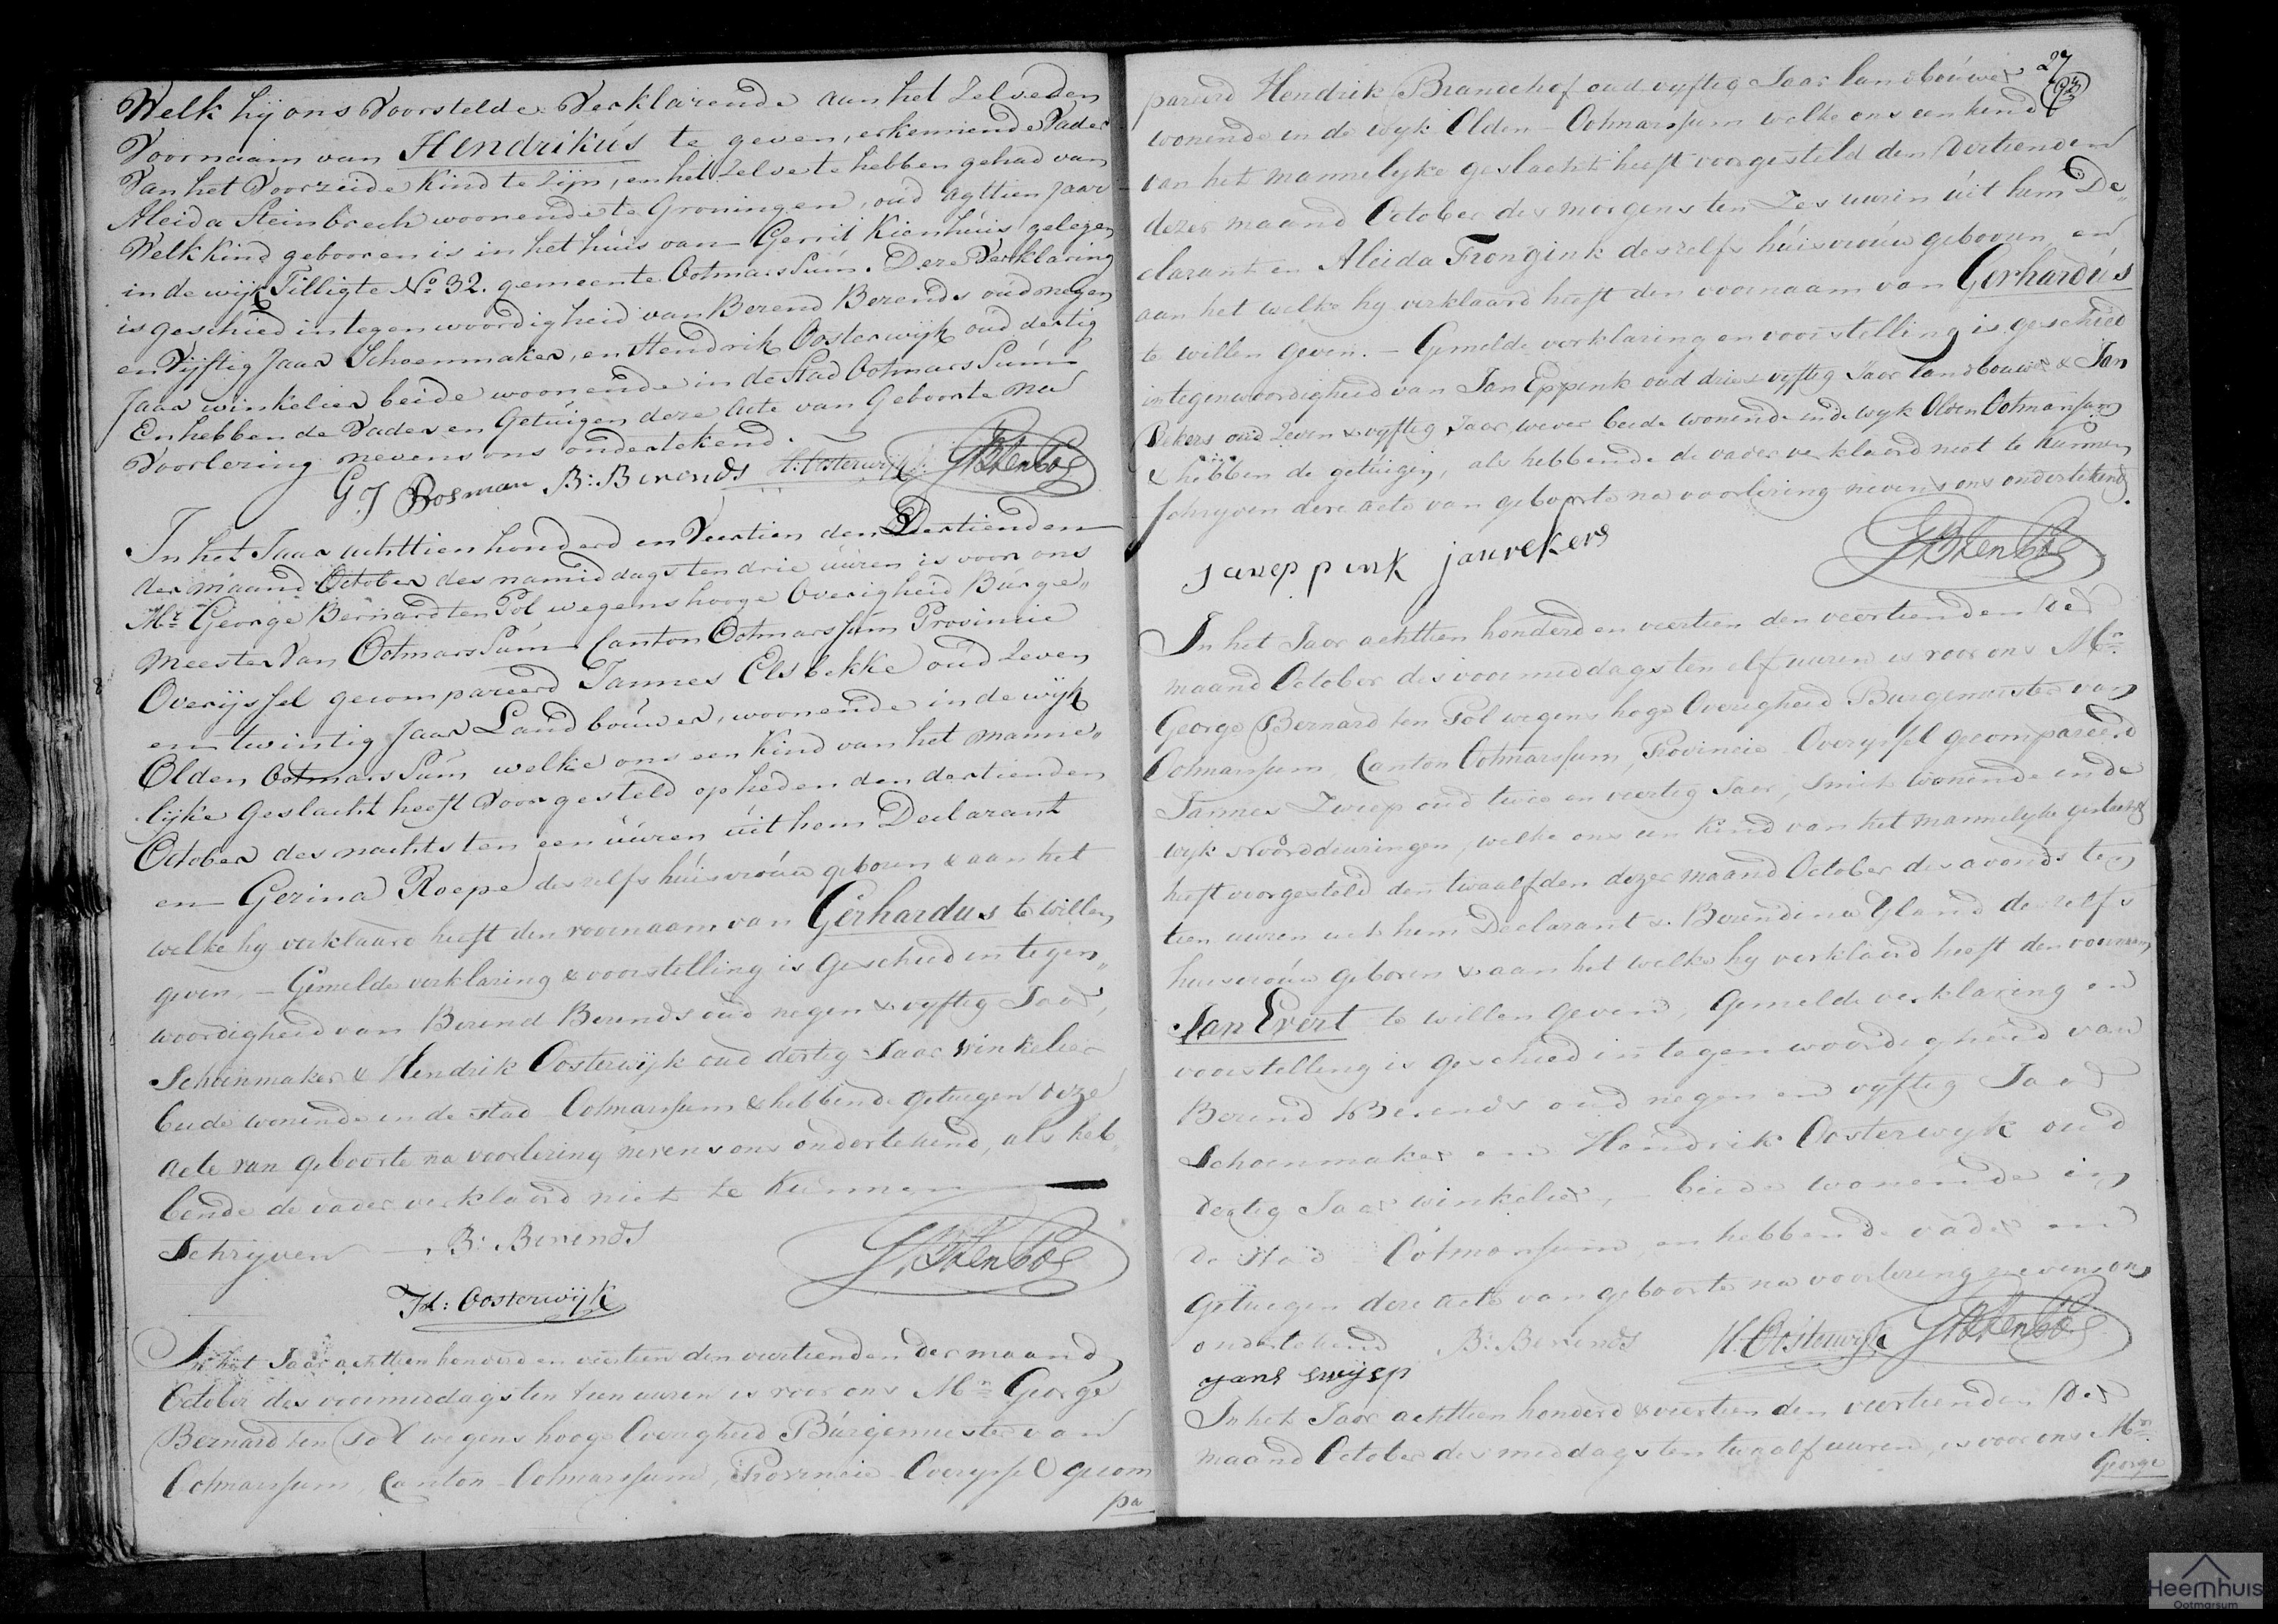 Welk hij ons Voorstelde Verklarende aan het Zelve den
Voornaam van Hendrikus te geven, erkennende Vader
Van het Voorzeide Kind te Zijn, en het Zelve te hebben gehad van
Aleida Steinbrech woonende te Groningen, oud agttien Jaar
Welk Kind gebooren is in het huis van Gerrit Kienhuis gelegen
in de wijk Tilligte No 32. gemeente Ootmarssum. Deze Verklaring
is geschied in tegenwoordigheid van Berend Berends oud negen
en Vijftig Jaar Schoenmaker, en Hendrik Oosterwijk oud dertig
Jaar winkelier beide woonende in de Stad Ootmarssum
En hebben de Vader en Getuigen deze Acte van Geboorte na
Voorlezing nevens ons ondertekend.
G J Bosman B: Berends H: Oosterwijk GBtenPol
In het Jaar achttien honderd en Veertien den Dertienden
der maand October des namiddags ten drie uuren is voor ons
Mr George Bernard ten Pol wegens hooge Overigheid Burge„
meester Van Ootmarssum Canton Ootmarssum Provincie
Overijssel gecompareerd Jannes Elsbekke oud Zeven
en twintig Jaar Landbouwer, woonende in de wijk
Olden Ootmarssum welke ons een Kind van het manne„
lijke Geslacht heeft Voorgesteld op heden den dertienden
October des nachts ten een uuren uit hem Declarant
en Gerina Roepe deszelfs huisvrouw geboren & aan het
welke hy verklaard heeft den voornaam van Gerhardus te willen
geven. — Gemelde verklaring & voorstelling is geschied in tegen„
woordigheid van Berend Berends oud negen & vyftig Jaar,
Schoenmaker & Hendrik Oosterwijk oud dertig Jaar Winkelier
beide wonende in de Stad Ootmarssum & hebbende getuigen deze
acte van geboorte na voorlezing nevens ons ondertekend, als heb„
bende de vader verklaard niet te Kunnen
Schryven B: Berends GBtenPol
Hd: Oosterwijk
In het Jaar achttien honderd en veertien den veertienden der maand
October des voormiddags ten tien uuren is voor ons Mr George
Bernard ten Pol wegens hooge Overigheid Burgemeester van
Ootmarssum, Canton Ootmarssum, Provincie Overyssel gecom
pa
27
pareerd Hendrik Brandehof oud vyftig Jaar landbouwer
wonende in de wyk Olden-Ootmarssum welke ons een kend
van het mannelyke geslacht heeft voorgesteld den dertienden
dezer maand October des morgens ten Zes uuren uit hem De„
clarant en Aleida Frongink deszelfs huisvrouw gebooren en
aan het welke hy verklaard heeft den voornaam van Gerhardus
te willen geven. — Gemelde verklaring en voorstelling is geschied
in tegenwoordigheid van Jan Eppink oud drie & vyftig Jaar landbouwer & Jan
Rekers oud Zeven & vyftig Jaar wever beide wonende in de wyk Olden Ootmarssum
& hebben de getuigen, als hebbende de vader verklaard niet te kunnen
schryven deze acte van geboorte na voorlezing nevens ons ondertekend.
jan eppink jan rekers GBtenPol
In het Jaar achttien honderd en veertien den veertienden der
maand October des voormiddags ten elf uuren is voor ons Mr
George Bernard ten Pol wegens hoge Overigheid Burgemeester van
Ootmarssum, Canton Ootmarssum, Provincie Overyssel gecompareerd
Jannes Zweep oud twee en veertig Jaar, Smit wonende in de
wyk Noorddeuringen, welke ons een Kind van het mannelyke geslacht
heeft voorgesteld den twaalfden dezer maand October des avonds ten
tien uuren uit hem Declarant & Berendina Yland deszelfs
huisvrouw geboren & aan het welke hy verklaard heeft den voornaam
Jan Evert te willen geven, Gemelde verklaring en
voorstelling is geschied in tegenwoordigheid van
Berend Berends oud negen en vyftig Jaar
Schoenmaker en Hendrik Oosterwyk oud
dertig Jaar winkelier, beide wonende in
de Stad Ootmarssum en hebben de vader en
getuigen deze acte van geboorte na voorlezing nevens ons
ondertekend B: Berends H: Oosterwijk GBtenPol
yans swijep
In het Jaar achttien honderd & veertien den veertienden der
maand October des middags ten twaalf uuren, is voor ons Mr
George
Heemhuis
Ootmarsum